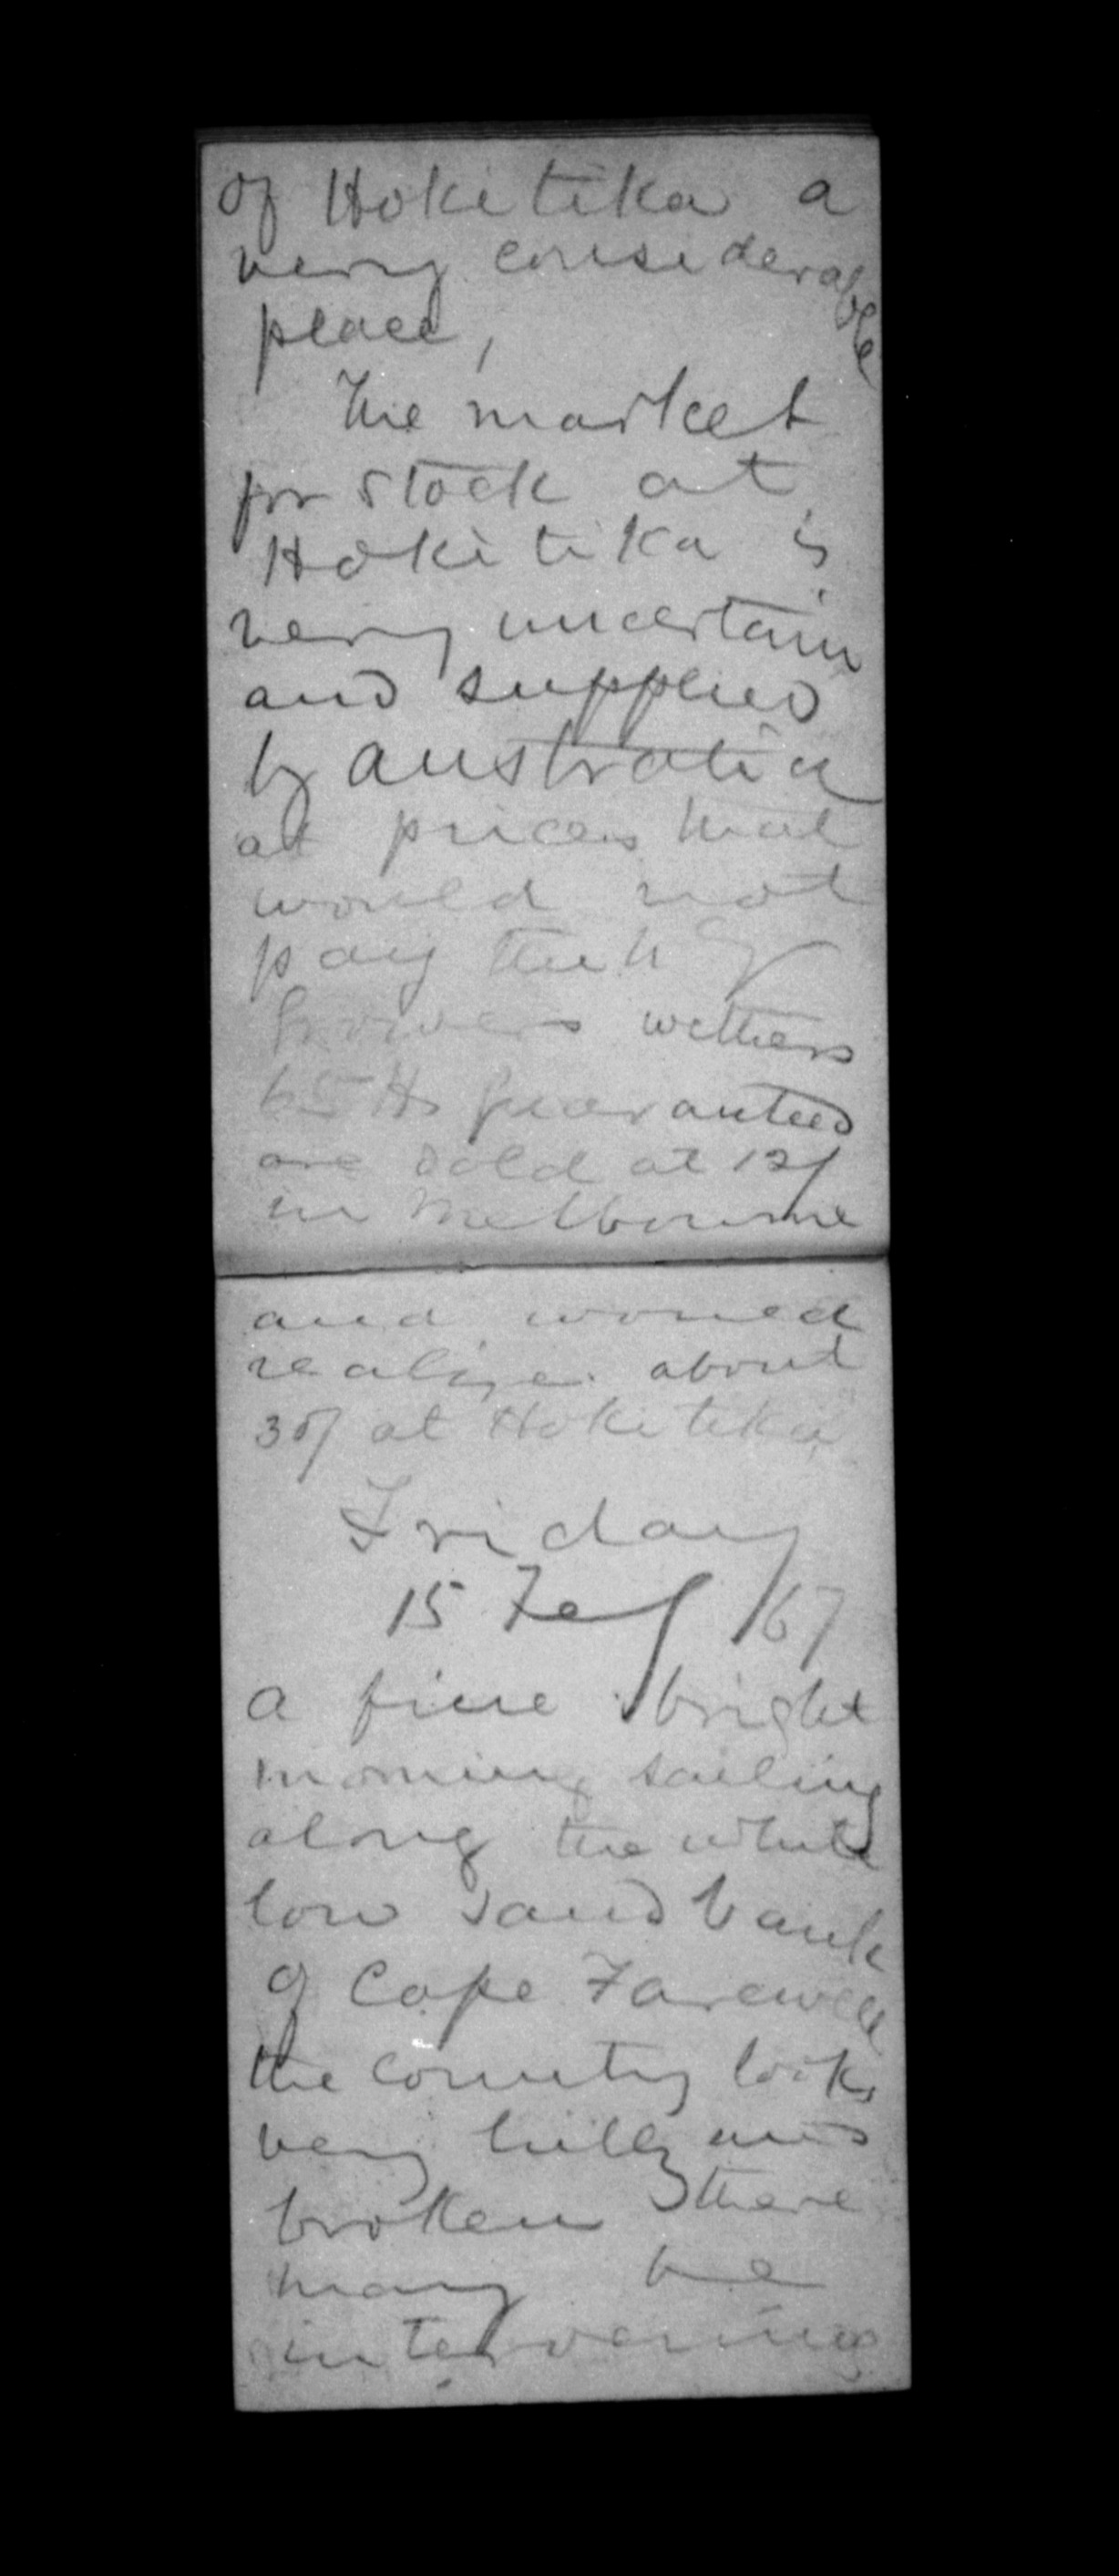 of Hokitika a
very considerable
place,
The market
for stock at
Hokitika is
very uncertain
and supplied
by Australia
at prices that
would not
pay the N Z
growers wethers
65 lbs guaranteed
are sold at 12/
in Melbourne
and would
realize about
30/ at Hokitika
Friday
15 Fey /67
a fine bright
morning sailing
along the white
low sand bank
of Cape Farewell
the country looks
very hilly and
broken there
may be
intervening